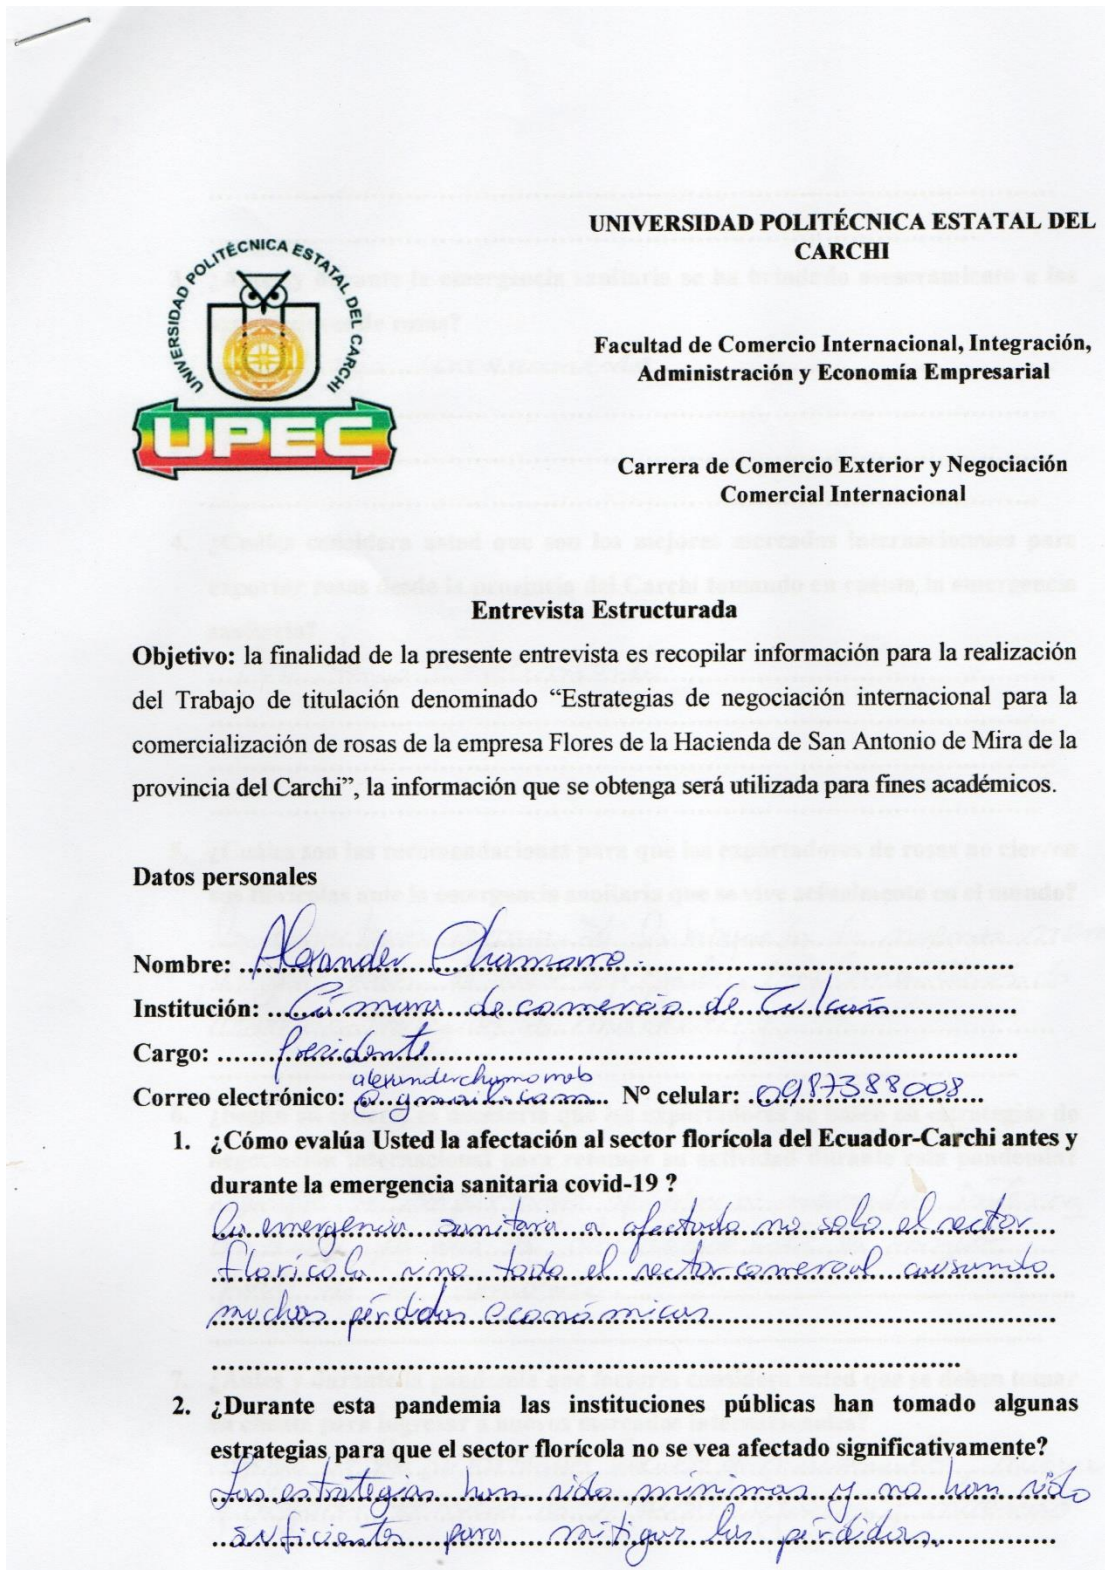 UNIVERSIDAD POLITÉCNICA ESTATAL DEL CARCHI
UPEC
UNIVERSIDAD POLITÉCNICA ESTATAL DEL
CARCHI
Facultad de Comercio Internacional, Integración,
Administración y Economía Empresarial
Carrera de Comercio Exterior y Negociación
Comercial Internacional
Entrevista Estructurada
Objetivo: la finalidad de la presente entrevista es recopilar información para la realización
del Trabajo de titulación denominado “Estrategias de negociación internacional para la
comercialización de rosas de la empresa Flores de la Hacienda de San Antonio de Mira de la
provincia del Carchi”, la información que se obtenga será utilizada para fines académicos.
Datos personales
Nombre: Alexander Chamorro.
Institución: Cámara de comercio de Tulcán
Cargo: Presidente
Correo electrónico: @gmail.com N° celular: 0987388008
1. ¿Cómo evalúa Usted la afectación al sector florícola del Ecuador-Carchi antes y
durante la emergencia sanitaria covid-19 ?
La emergencia sanitaria a afectado no solo el sector
florícola sino todo el sector comercial causando
muchas pérdidas económicas
2. ¿Durante esta pandemia las instituciones públicas han tomado algunas
estrategias para que el sector florícola no se vea afectado significativamente?
Las estrategias han sido mínimas y no han sido
suficientes para mitigar las pérdidas.